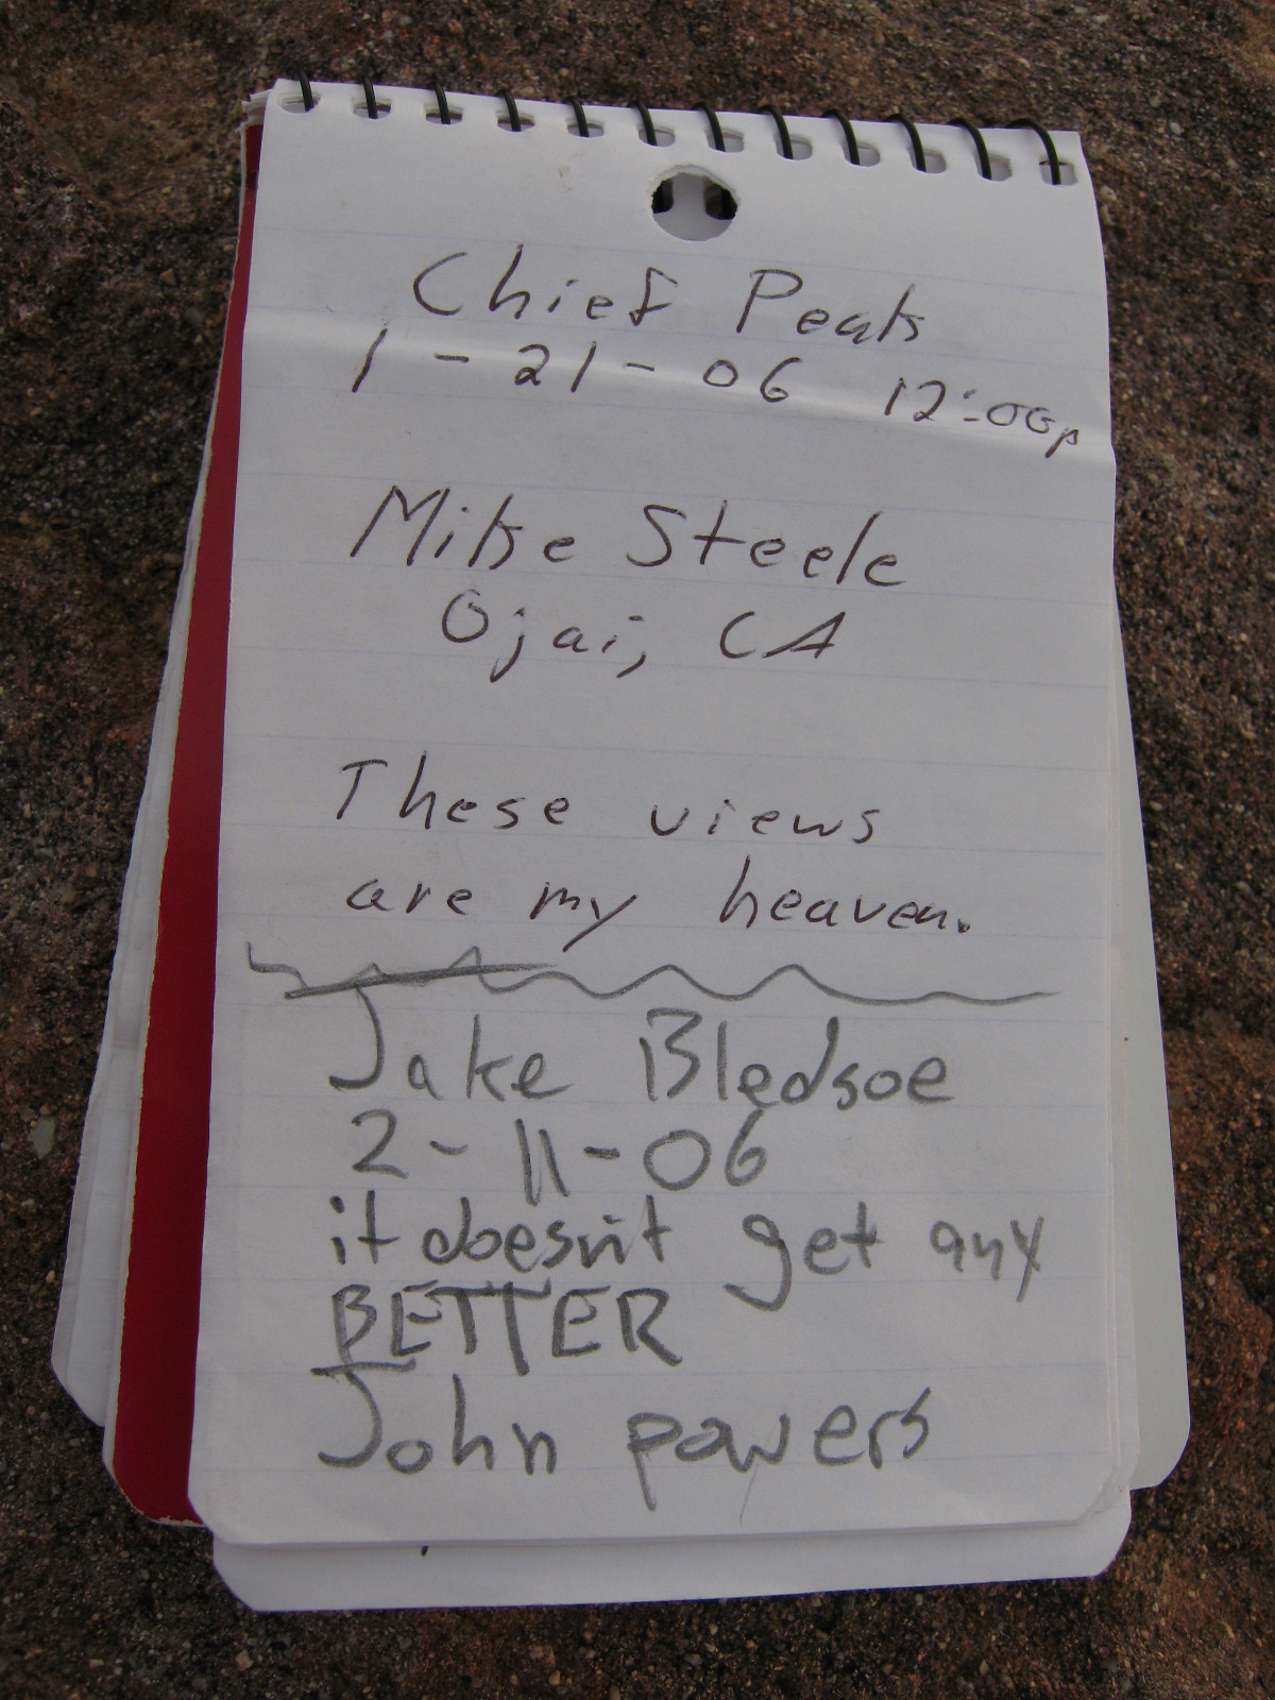 Chief Peak
1-21-06 12:00p
Mike Steele
Ojai, CA
These views
are my heaven.
Jake Bledsoe
2-11-06
it doesn't get any
BETTER
John powers